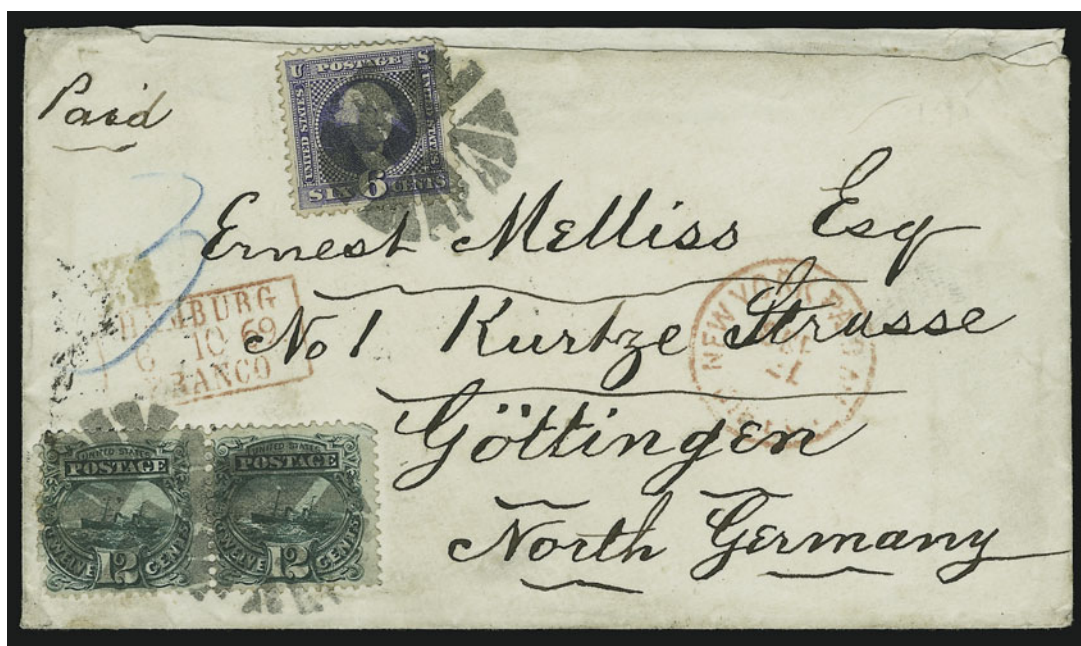 Paid
U POSTAGE S
UNITED STATES
UNITED STATES
SIX 6 CENTS
3
Ernest Melliss Esq
No 1 Kurtze Strasse
Göttingen
North Germany
HAMBURG
6 10 69
FRANCO
NEW YORK PAID ALL
UNITED STATES
POSTAGE
TWELVE 12 CENTS
UNITED STATES
POSTAGE
TWELVE 12 CENTS